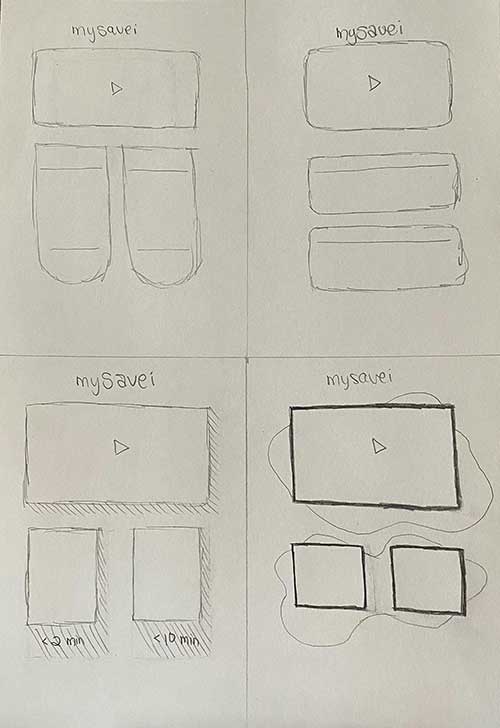 mysavei
mysavei
mysavei
<2 min
<10 min
mysavei